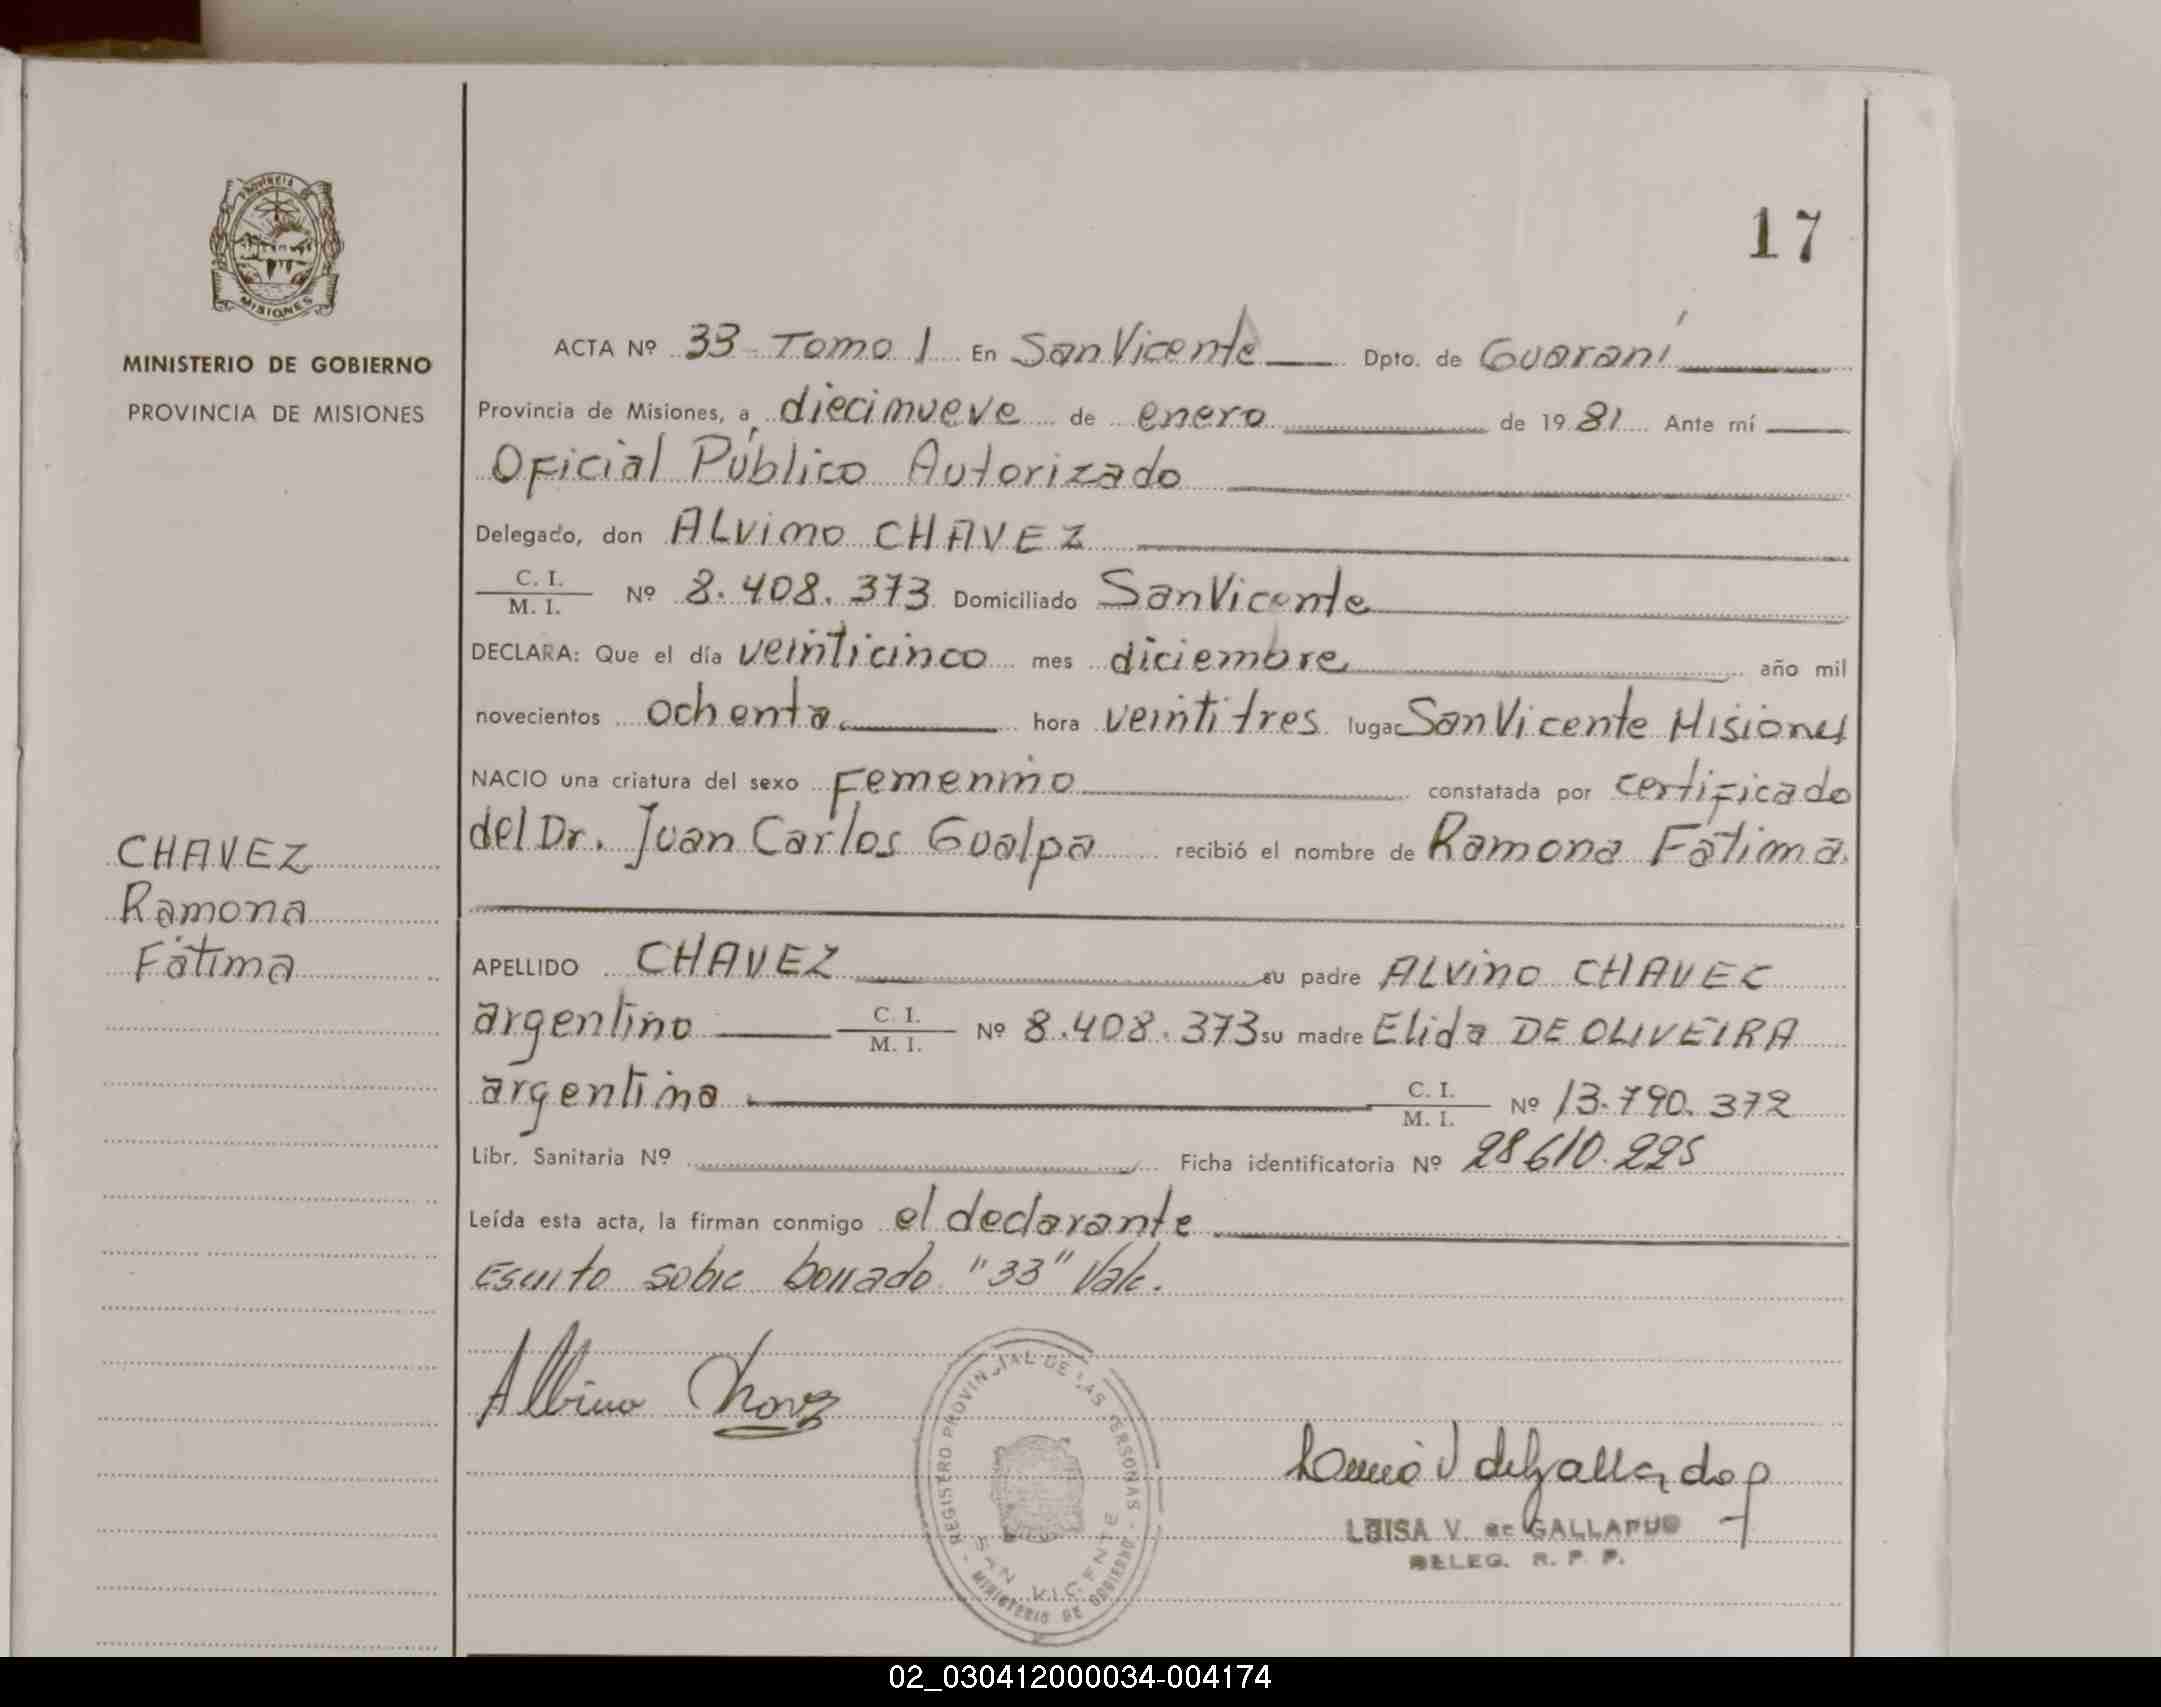 17
PROVINCIA
MISIONES
MINISTERIO DE GOBIERNO
PROVINCIA DE MISIONES
CHAVEZ
Ramona
Fátima
ACTA Nº 33 Tomo 1 En San Vicente Dpto. de Guaraní
Provincia de Misiones, a diecinueve de enero de 1981 Ante mí
Oficial Público Autorizado
Delegado, don ALvino CHAVEZ
C. I.
M. I. Nº 8.408.373 Domiciliado San Vicente
DECLARA: Que el día veinticinco mes diciembre año mil
novecientos ochenta hora veintitres lugar San Vicente Misiones
NACIO una criatura del sexo Femenino constatada por certificado
del Dr. Juan Carlos Gualpa recibió el nombre de Ramona Fátima
APELLIDO CHAVEZ su padre ALvino CHAVEZ
argentino C. I. M. I. Nº 8.408.373 su madre Elida DE OLIVEIRA
argentina C. I. M. I. Nº 13.790.372
Libr. Sanitaria Nº Ficha identificatoria Nº 28610.225
Leída esta acta, la firman conmigo el declarante
Escrito sobre borrado "33" Vale.
Albino Chavez
REGISTRO PROVINCIAL DE LAS PERSONAS - MINISTERIO DE GOBIERNO -
SAN VICENTE
LUISA V. de GALLARDO
DELEG. R. P. P.
02_030412000034-004174